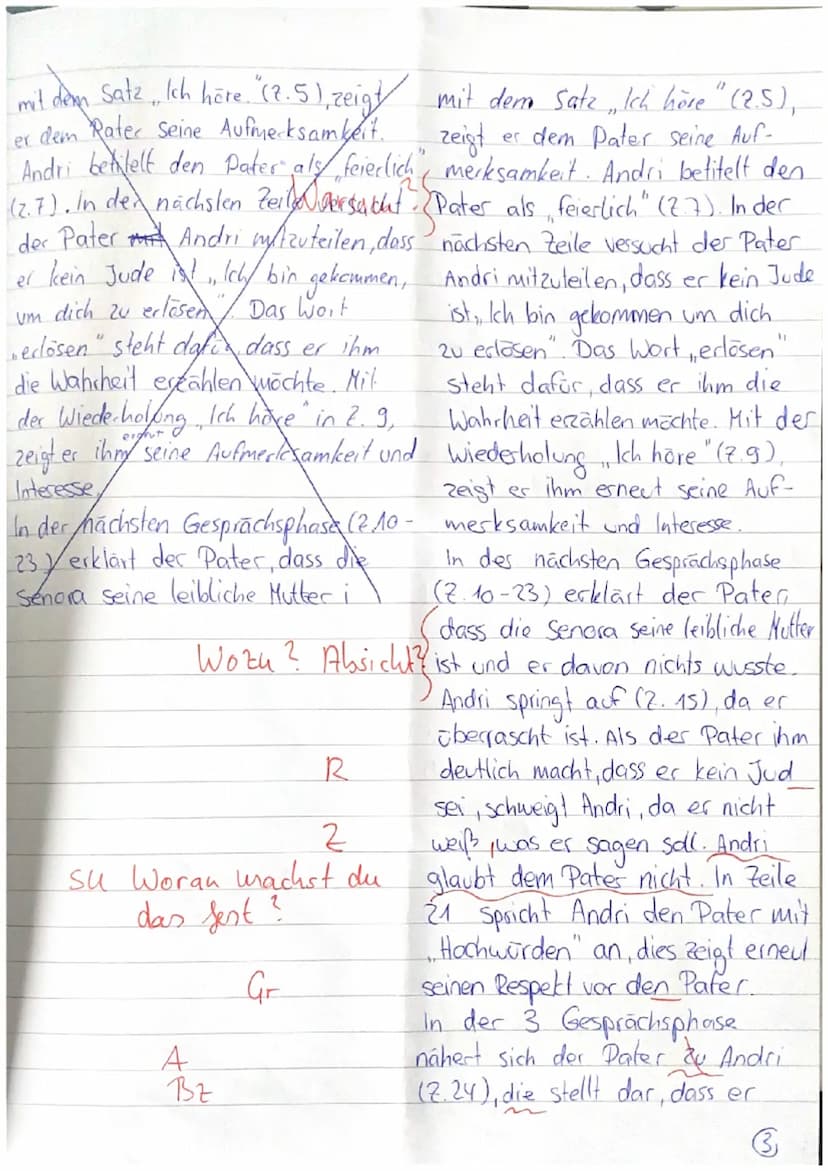 mit dem Satz „Ich höre."(Z.5), zeigt
er dem Pater seine Aufmerksamkeit.
Andri betitelt den Pater als „feierlich"
(Z.7). In der nächsten Zeile versucht
der Pater Andri mitzuteilen, dass
er kein Jude ist „Ich bin gekommen,
um dich zu erlösen". Das Wort
„erlösen" steht dafür, dass er ihm
die Wahrheit erzählen möchte. Mit
der Wiederholung „Ich höre" in Z. 9,
zeigt er ihm erneut seine Aufmerksamkeit und
Interesse.
In der nächsten Gesprächsphase (Z.10-
23) erklärt der Pater, dass die
Senora seine leibliche Mutter i
Warum?
Wozu? Absicht?
R
Z
SU Woran machst du
das fest?
Gr
A
Bz
mit dem Satz „Ich höre" (Z.5),
zeigt er dem Pater seine Auf-
merksamkeit. Andri betitelt den
Pater als „feierlich" (Z.7). In der
nächsten Zeile versucht der Pater
Andri mitzuteilen, dass er kein Jude
ist „Ich bin gekommen um dich
zu erlösen". Das Wort „erlösen"
steht dafür, dass er ihm die
Wahrheit erzählen möchte. Mit der
Wiederholung „Ich höre" (Z.9),
zeigt er ihm erneut seine Auf-
merksamkeit und Interesse.
In der nächsten Gesprächsphase
(Z.10-23) erklärt der Pater,
dass die Senora seine leibliche Mutter
ist und er davon nichts wusste.
Andri springt auf (Z. 15), da er
überrascht ist. Als der Pater ihm
deutlich macht, dass er kein Jud
sei, schweigt Andri, da er nicht
weiß, was er sagen soll. Andri
glaubt dem Pater nicht. In Zeile
21 spricht Andri den Pater mit
„Hochwürden" an, dies zeigt erneut
seinen Respekt vor den Pater.
In der 3 Gesprächsphase
nähert sich der Pater zu Andri
(Z.24), die stellt dar, dass er
3